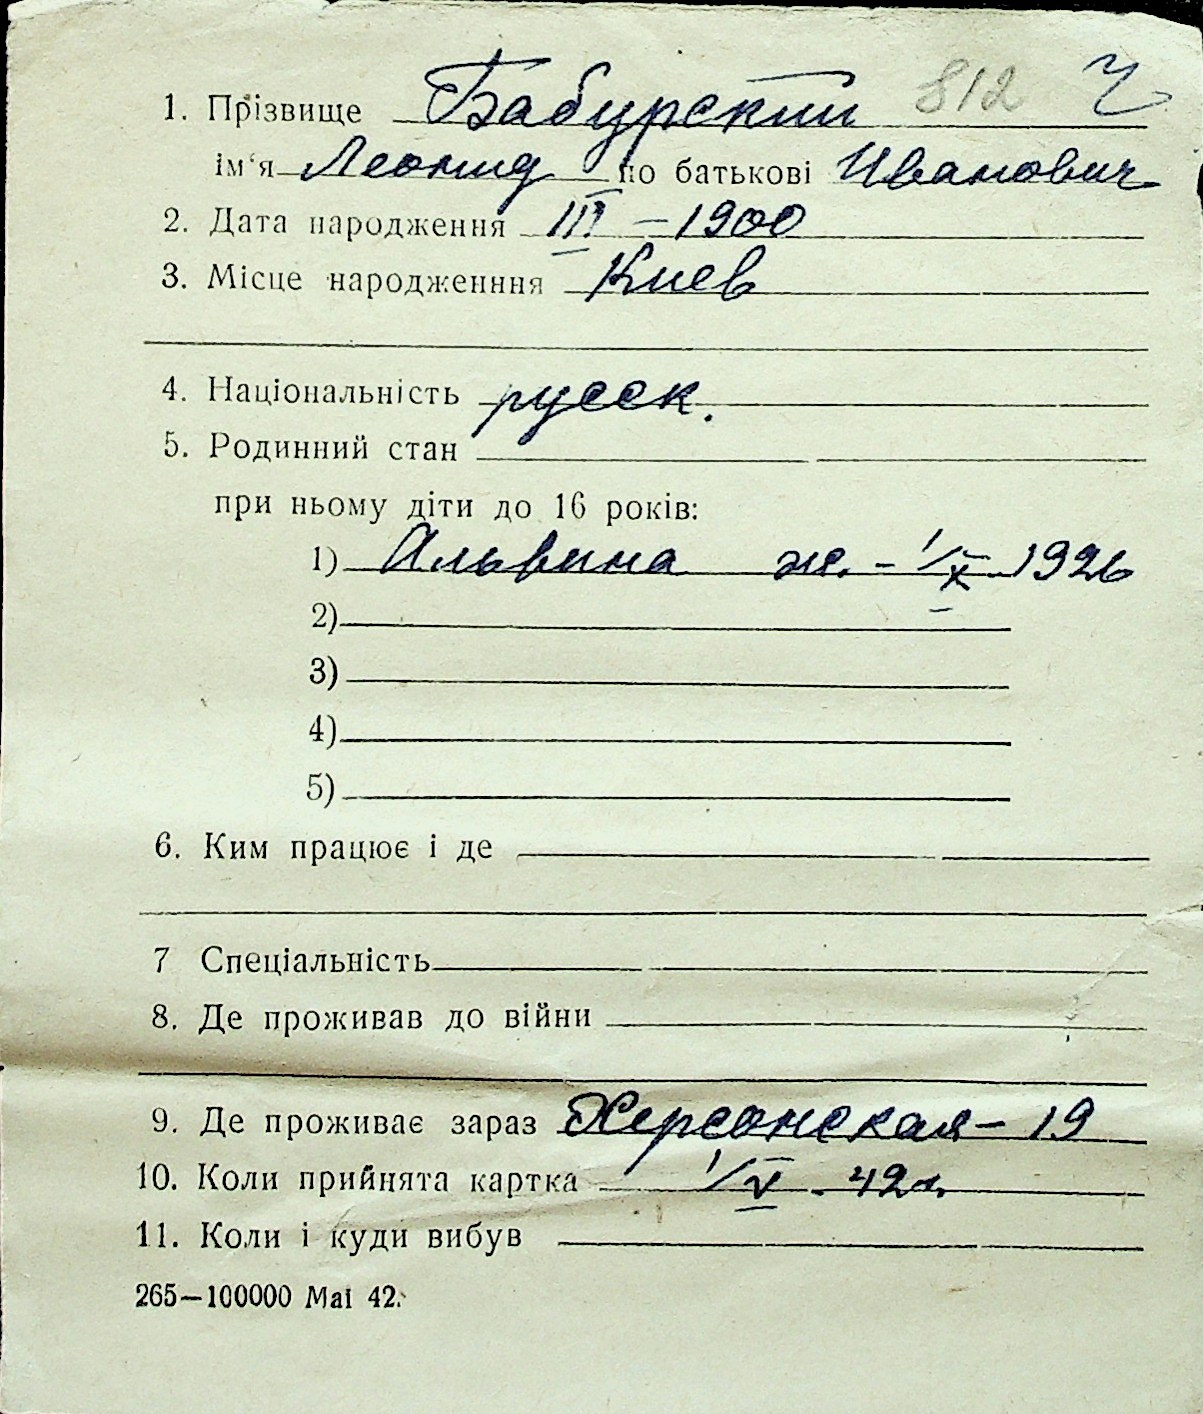 1. Прізвище Бабурский 812 Ч
ім'я Леонид по батькові Иванович
2. Дата народження III – 1900
3. Місце народженння Киев
4. Національність русск.
5. Родинний стан
при ньому діти до 16 років:
1) Альвина ж. – 1/X 1926
2)
3)
4)
5)
6. Ким працює і де
7 Спеціальність
8. Де проживав до війни
9. Де проживає зараз Херсонская – 19
10. Коли прийнята картка 1/V. 42г.
11. Коли і куди вибув
265—100000 Mai 42.